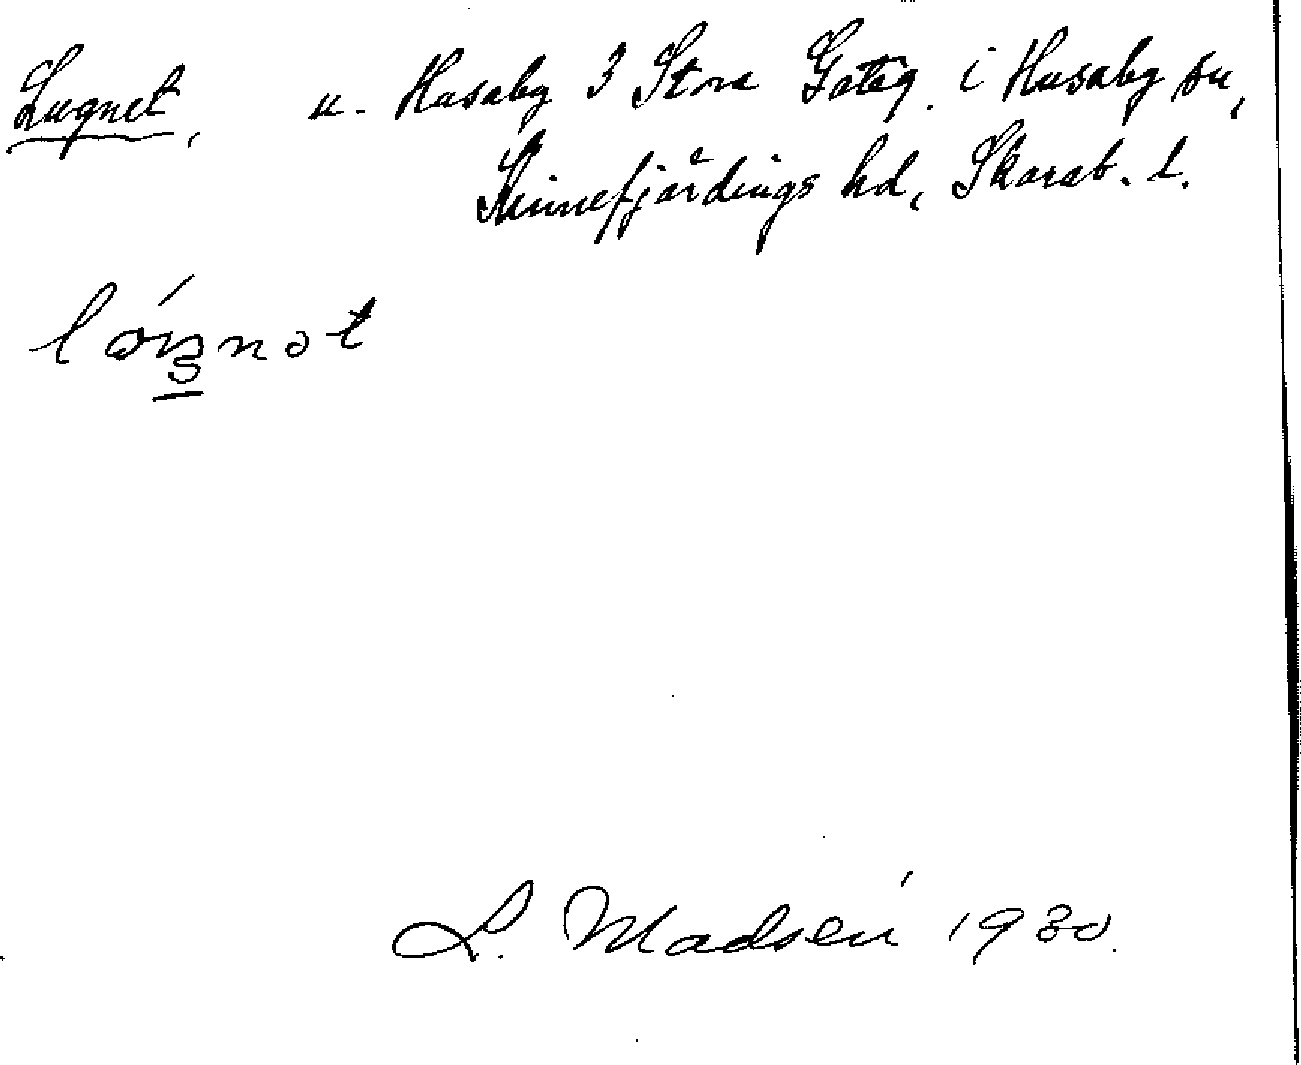 Lugnet, u. Husaby 3 Stora Gateg. i Husaby sn,
Kinnefjärdings hd, Skarab. l.
L. Madsén 1930.